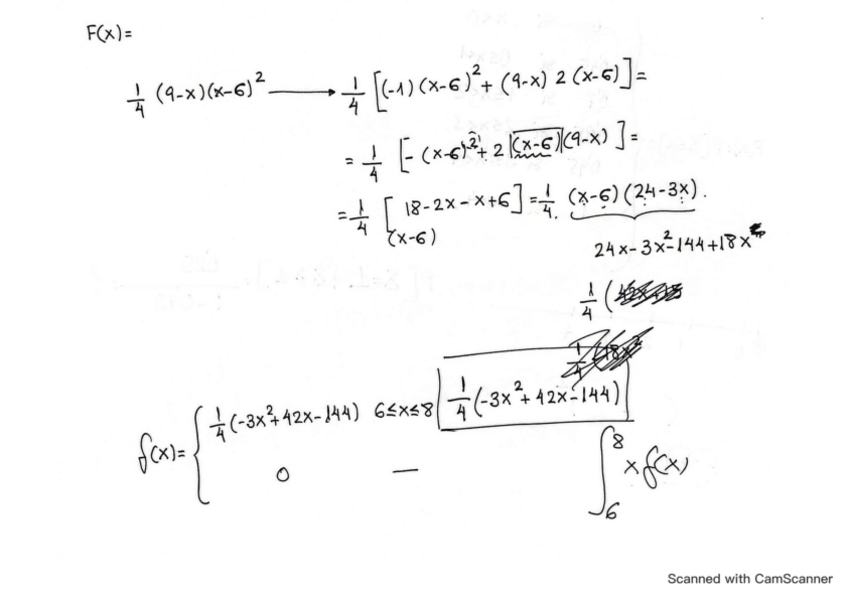 F(x)=
1/4 (9-x)(x-6)² → 1/4 [(-1)(x-6)² + (9-x) 2 (x-6)] =
= 1/4 [-(x-6)² + 2 (x-6)(9-x)] =
= 1/4 [18-2x-x+6] = 1/4. (x-6)(24-3x).
(x-6)
24x-3x²-144+18x
1/4 (
1/4 (-3x²+42x-144)
f(x)= { 1/4 (-3x²+42x-144) 6≤x≤8
0 —
∫₆⁸ x f(x)
Scanned with CamScanner